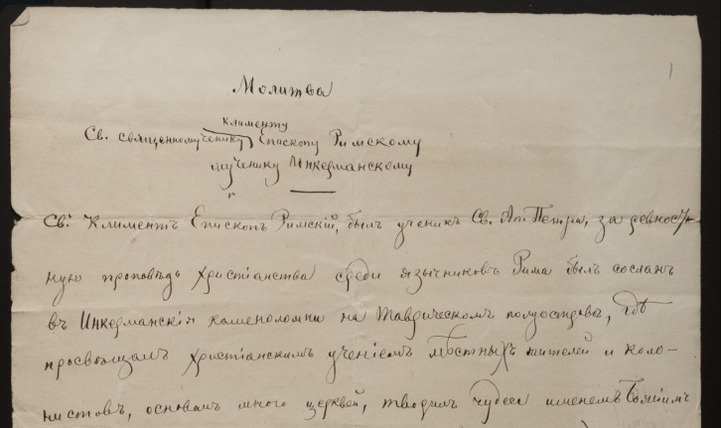 1
Молитва
Клименту
Св. священномученику Епископу Римскому
мученику Инкерманскому
Св. Климентъ Епископъ Римскій, былъ ученикъ Св. Ап. Петра, за ревност-
ную проповѣдь христіанства среди язычниковъ Рима былъ сосланъ
въ Инкерманскія каменоломни на Таврическомъ полуостровѣ, гдѣ
просвѣщалъ христіанскимъ ученіемъ мѣстныхъ жителей и коло-
нистовъ, основалъ много церквей, творилъ чудеса именемъ Божіимъ